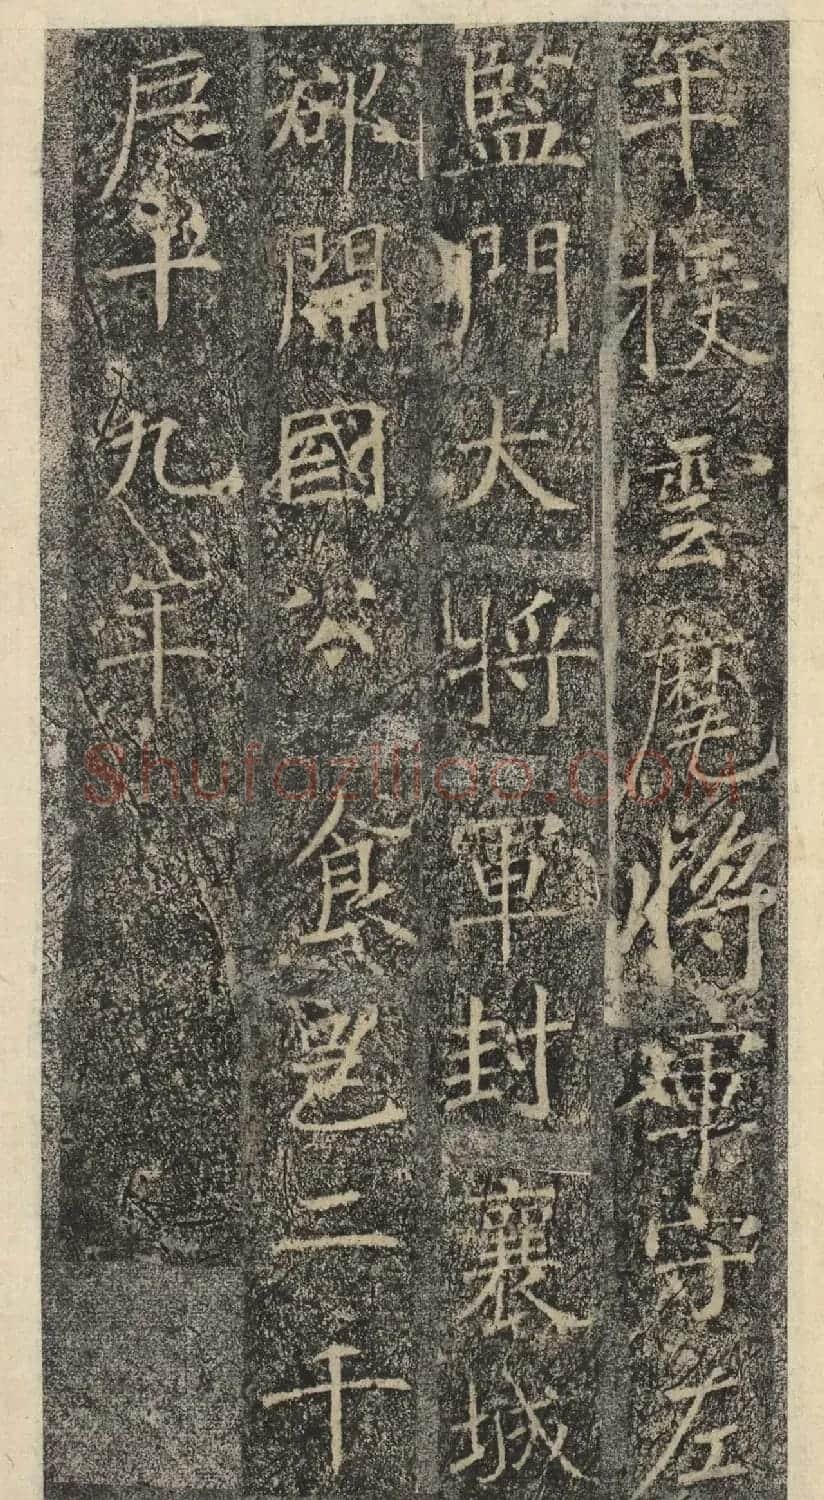 年授雲麾將軍守左
監門大將軍封襄城
郡開國公食邑二千
戶十九年
Shufaziliao.COM